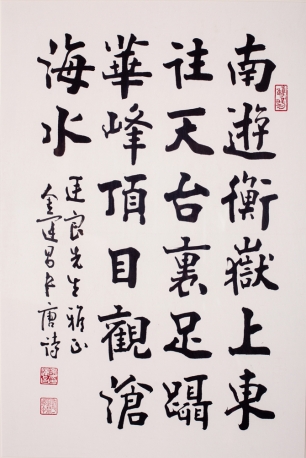 南遊衡嶽上東
往天台裏足躡
華峰頂目觀滄
海水
良先生雅正
金運昌書唐詩